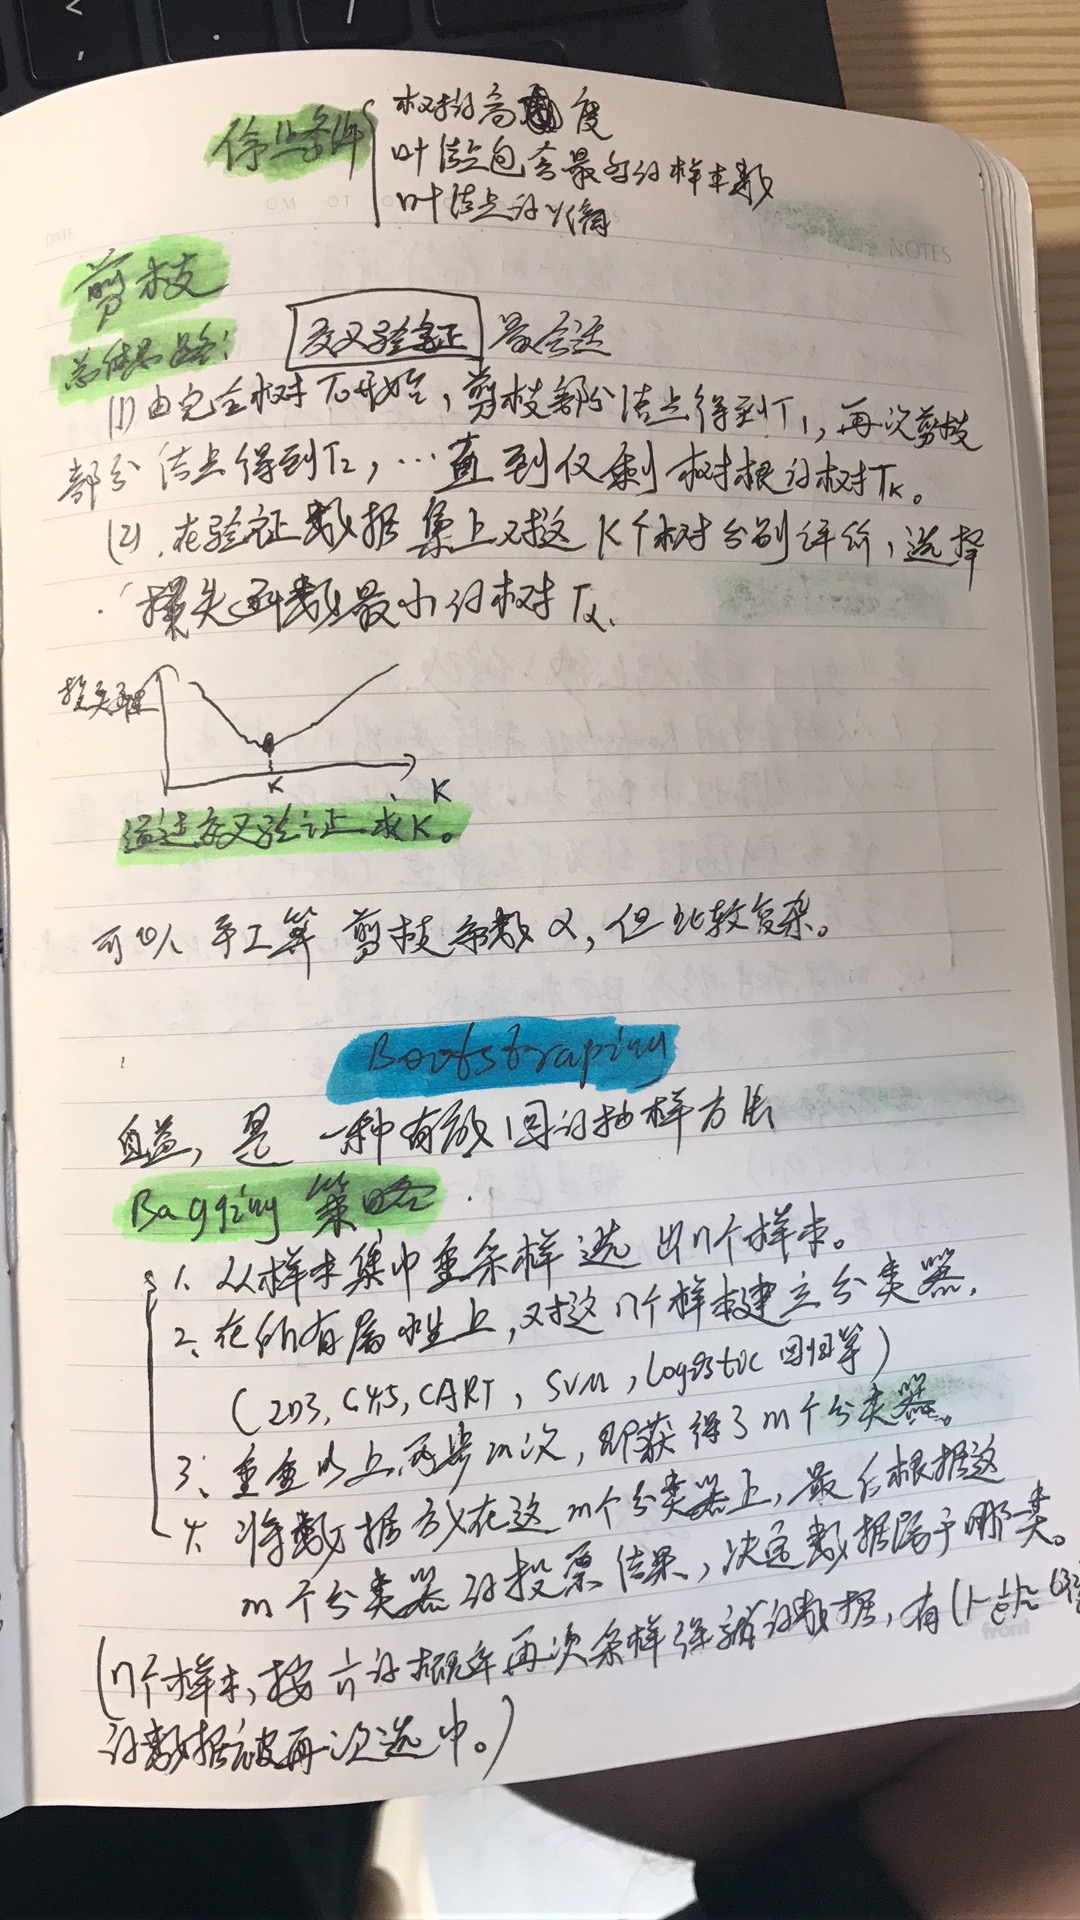 停止条件 { 树的高度
叶结点包含最多的样本数
叶结点的
DATE
NOTES
剪枝
总体思路： 交叉验证 最合适
(1) 由完全树T₀开始，剪枝部分结点得到T₁，再次剪枝
部分结点得到T₂，…直到仅剩树根的树Tₖ。
(2). 在验证数据集上对这K个树分别评价，选择
损失函数最小的树Tα.
损失函数
K
K
通过交叉验证求K。
可以手工算剪枝系数α，但比较复杂。
Bootstraping
自益，是一种有放回的抽样方法
Bagging 策略
1、从样本集中重采样选出n个样本。
2、在所有属性上，对这n个样本建立分类器，
(ID3, C45, CART, SVM, Logistic 回归等)
3、重复以上两步m次，即获得了m个分类器。
4、将数据放在这m个分类器上，最后根据这
m个分类器的投票结果，决定数据属于哪类。
(n个样本，按 1/n 的概率再次采样得新的数据，有(1-1/e)≈
的数据被再次选中。)
front